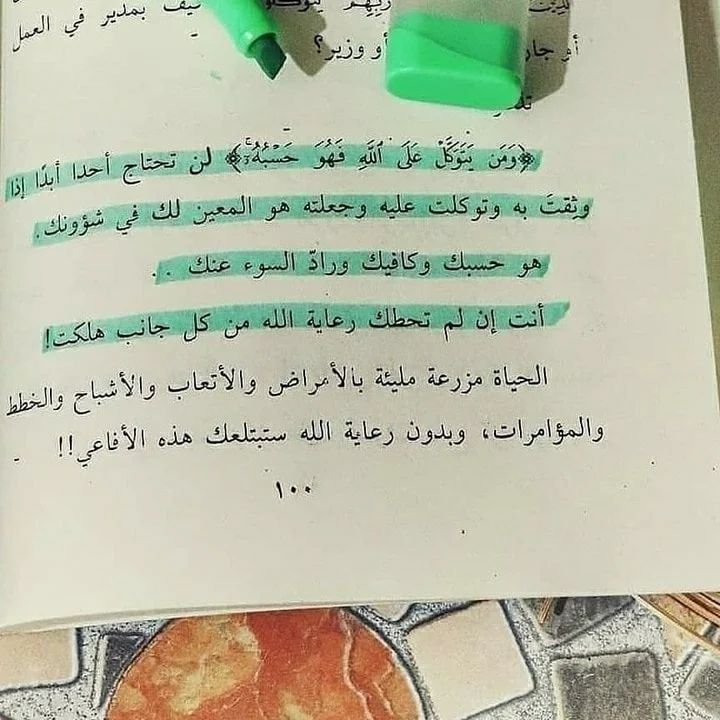 يف بمدير في العمل
أو جار أو وزير؟
﴿وَمَن يَتَوَكَّلْ عَلَى ٱللَّهِ فَهُوَ حَسْبُهُۥٓ﴾ لن تحتاج أحدا أبدًا إذا
وثِقتَ به وتوكلت عليه وجعلته هو المعين لك في شؤونك.
هو حسبك وكافيك ورادّ السوء عنك . .
أنت إن لم تحطك رعاية الله من كل جانب هلكت!
الحياة مزرعة مليئة بالأمراض والأتعاب والأشباح والخطط
والمؤامرات، وبدون رعاية الله ستبتلعك هذه الأفاعي!!
١٠٠